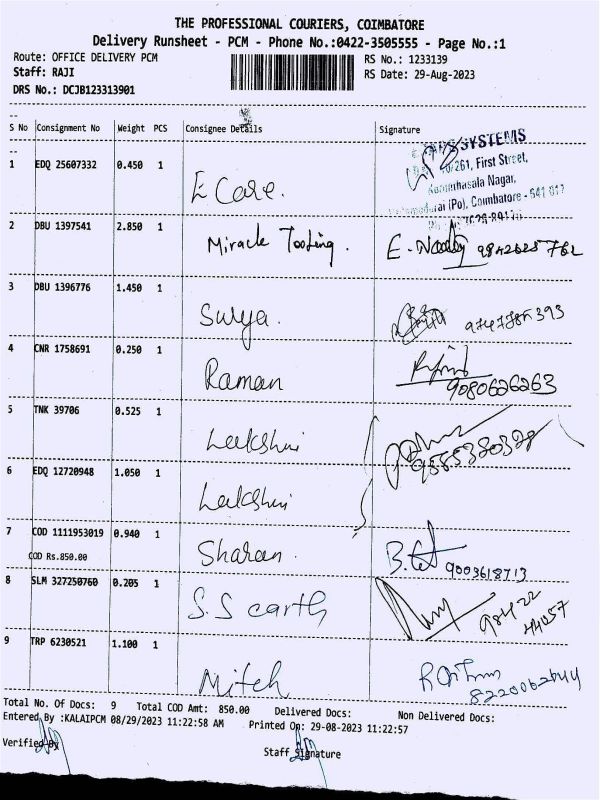 THE PROFESSIONAL COURIERS, COIMBATORE
Delivery Runsheet - PCM - Phone No.:0422-3505555 - Page No.:1
Route: OFFICE DELIVERY PCM RS No.: 1233139
Staff: RAJI RS Date: 29-Aug-2023
DRS No.: DCJB123313901
S No Consignment No Weight PCS Consignee Details Signature
1 EDQ 25607332 0.450 1 E Care. SYSTEMS
70/261, First Street,
Nagar,
(Po), Coimbatore - 641 017
2 DBU 1397541 2.850 1 Miracle Tooling. E. 9842625762
3 DBU 1396776 1.450 1 Surya. 9747385393
4 CNR 1758691 0.250 1 Raman 9080626263
5 TNK 39706 0.525 1 Lakshmi
6 EDQ 12720948 1.050 1 Lakshmi
7 COD 1111953019 0.940 1 Sharan. 9003618713
COD Rs.850.00
8 SLM 327250760 0.205 1 S.S earth 98422
44057
9 TRP 6230521 1.100 1 Mitch
Total No. Of Docs: 9 Total COD Amt: 850.00 Delivered Docs: Non Delivered Docs:
Entered By :KALAIPCM 08/29/2023 11:22:58 AM Printed On: 29-08-2023 11:22:57
Verified By Staff Signature